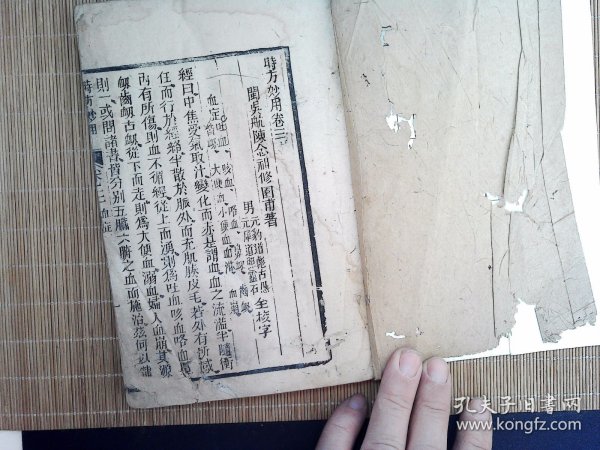 時方妙用卷三
閩吳航陳念祖修園甫著
男 元豹道彪古愚
元犀道照靈石 全校字
血症 吐血 咳血 咯血 鼻衄 齒衄
大便血 小便血 血淋 血崩
經曰中焦受氣取汁變化而赤是謂血血之流溢半隨衝
任而行於經絡半散於脈外而充肌腠皮毛若外有所感
內有所傷則血不循經從上而湧則為吐血咳血咯血鼻
衄齒衄舌衄從下而走則為大便血溺血婦人血崩其源
則一或問諸書皆分別五臟六腑之血而施治茲何以
時方妙用
卷三 血症
孔夫子旧书网
www.kongfz.com